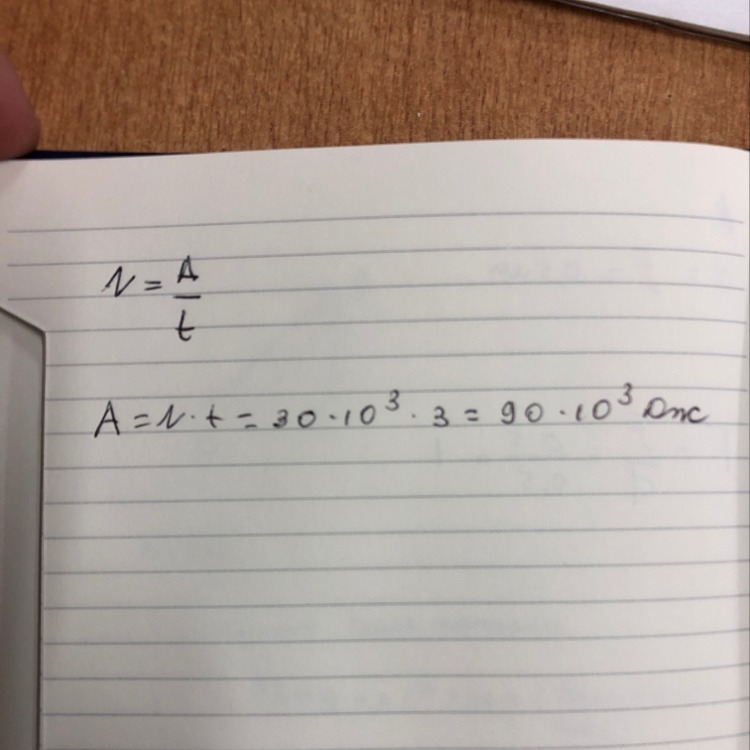 N = A/t
A = N · t = 30 · 10³ · 3 = 90 · 10³ Дж